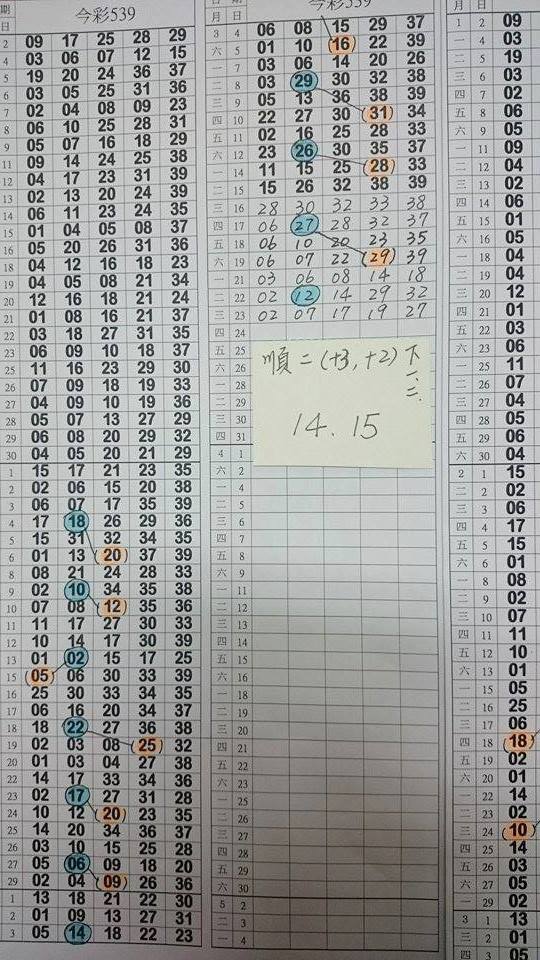 期 今彩539
日
2 09 17 25 28 29
4 03 06 07 12 15
5 19 20 24 36 37
6 03 05 25 31 36
7 02 04 08 09 23
8 06 10 25 28 31
9 05 07 16 18 29
11 09 14 24 25 38
12 04 17 23 31 39
13 02 13 20 24 39
14 06 11 23 24 35
15 01 04 05 08 37
16 05 20 26 31 36
18 04 12 16 18 23
19 04 05 08 21 34
20 12 16 18 21 24
21 01 08 16 21 37
22 03 18 27 31 35
23 06 09 10 18 37
25 11 16 23 29 30
26 07 09 18 19 33
27 04 09 10 19 36
28 05 07 13 27 29
29 06 08 20 29 32
30 04 05 20 21 29
1 15 17 21 23 35
2 02 06 15 20 38
3 06 07 17 35 39
4 17 18 26 29 36
5 15 31 32 34 35
6 01 13 20 37 39
8 08 21 24 28 33
9 02 10 34 35 38
10 07 08 12 35 36
11 11 17 27 30 33
12 10 14 17 30 39
13 01 02 15 17 25
15 05 06 30 33 39
16 25 30 33 34 35
17 06 16 20 34 37
18 18 22 27 36 38
19 02 03 08 25 32
20 01 03 04 27 38
22 14 17 33 34 36
23 02 17 27 31 28
24 10 12 20 23 35
25 14 20 34 36 37
26 03 10 15 25 28
27 05 06 09 18 20
29 02 04 09 26 36
1 13 18 21 22 30
2 01 09 13 27 31
3 05 14 18 22 23
今彩539
月 日
3 4 06 08 15 29 37
六 5 01 10 16 22 39
一 7 03 06 14 20 26
二 8 03 29 30 32 38
三 9 05 13 36 38 39
四 10 22 27 30 31 34
五 11 02 16 25 28 33
六 12 23 26 30 35 37
一 14 11 15 25 28 33
二 15 15 26 32 38 39
三 16 28 30 32 33 38
四 17 06 27 28 32 37
五 18 06 10 20 23 35
六 19 06 07 22 29 39
一 21 03 06 08 14 18
二 22 02 12 14 29 32
三 23 02 07 17 19 27
四 24
五 25
六 26
一 28
二 29
三 30
四 31
順二(+3,+2)下
一、二.
14. 15
4 1
六 2
一 4
二 5
三 6
四 7
五 8
六 9
一 11
二 12
三 13
四 14
五 15
六 16
一 18
二 19
三 20
四 21
五 22
六 23
一 25
二 26
三 27
四 28
五 29
六 30
5 2
二 3
一 4
月 日
1 2 09
一 4 03
二 5 19
三 6 03
四 7 02
五 8 06
六 9 05
一 11 09
二 12 04
三 13 02
四 14 06
五 15 01
六 16 05
一 18 04
二 19 04
三 20 12
四 21 01
五 22 03
六 23 06
一 25 11
二 26 07
三 27 04
四 28 05
五 29 06
六 30 04
2 1 15
二 2 02
三 3 06
四 4 17
五 5 15
六 6 01
一 8 08
二 9 02
三 10 07
四 11 11
五 12 10
六 13 01
一 15 05
二 16 25
三 17 06
四 18 18
五 19 02
六 20 01
一 22 14
二 23 02
三 24 10
四 25 14
五 26 03
六 27 05
一 29 02
3 1 13
三 2 01
四 3 05